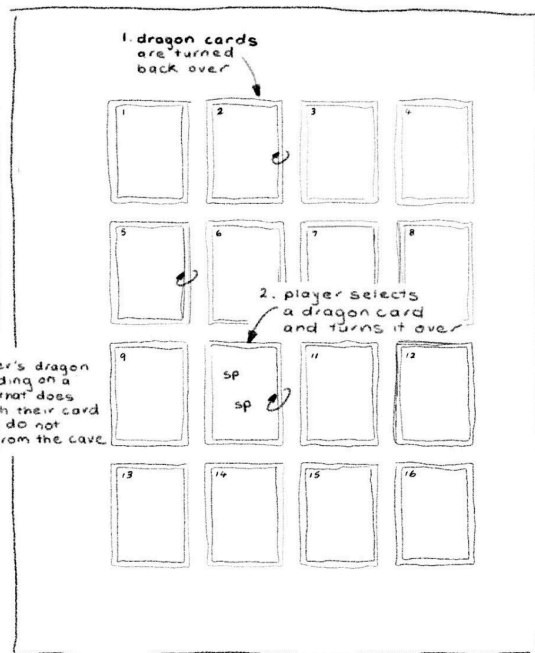 1. dragon cards
are turned
back over
1
2
3
4
5
6
7
8
2. player selects
a dragon card
and turns it over
9
sp
sp
11
12
er's dragon
ding on a
hat does
h their card
do not
from the cave
13
14
15
16